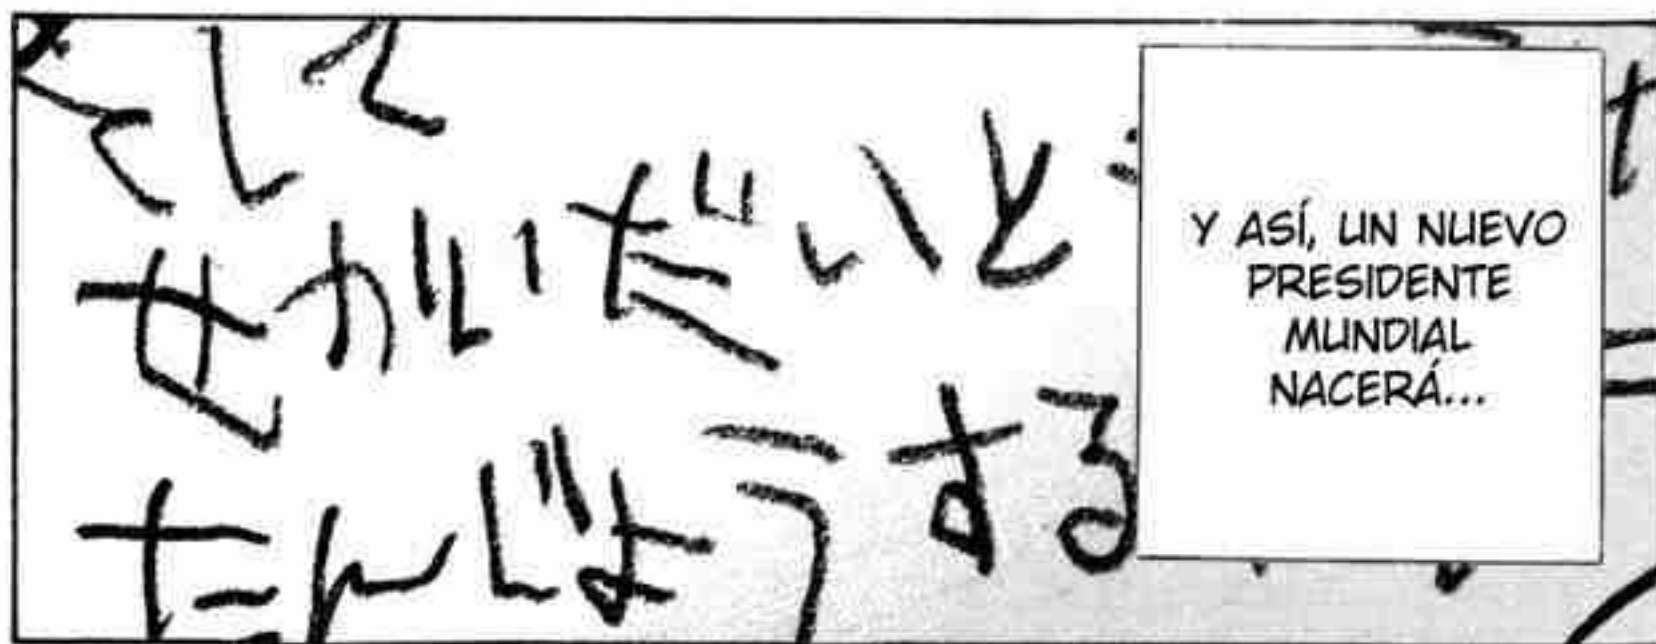 せかいだいと
たんじょうする
Y ASÍ, UN NUEVO
PRESIDENTE
MUNDIAL
NACERÁ...